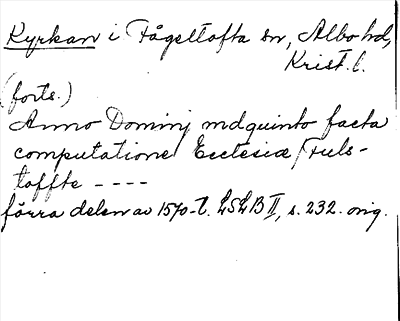 Kyrkan i Fågeltofta sn, Albo hd,
Krist. l.
(forts.)
Anno Dominj mdquinto facta
computatione Ecclesiæ Fuls-
toffte ----
förra delen av 1570-t. LSLB II, s. 232. orig.